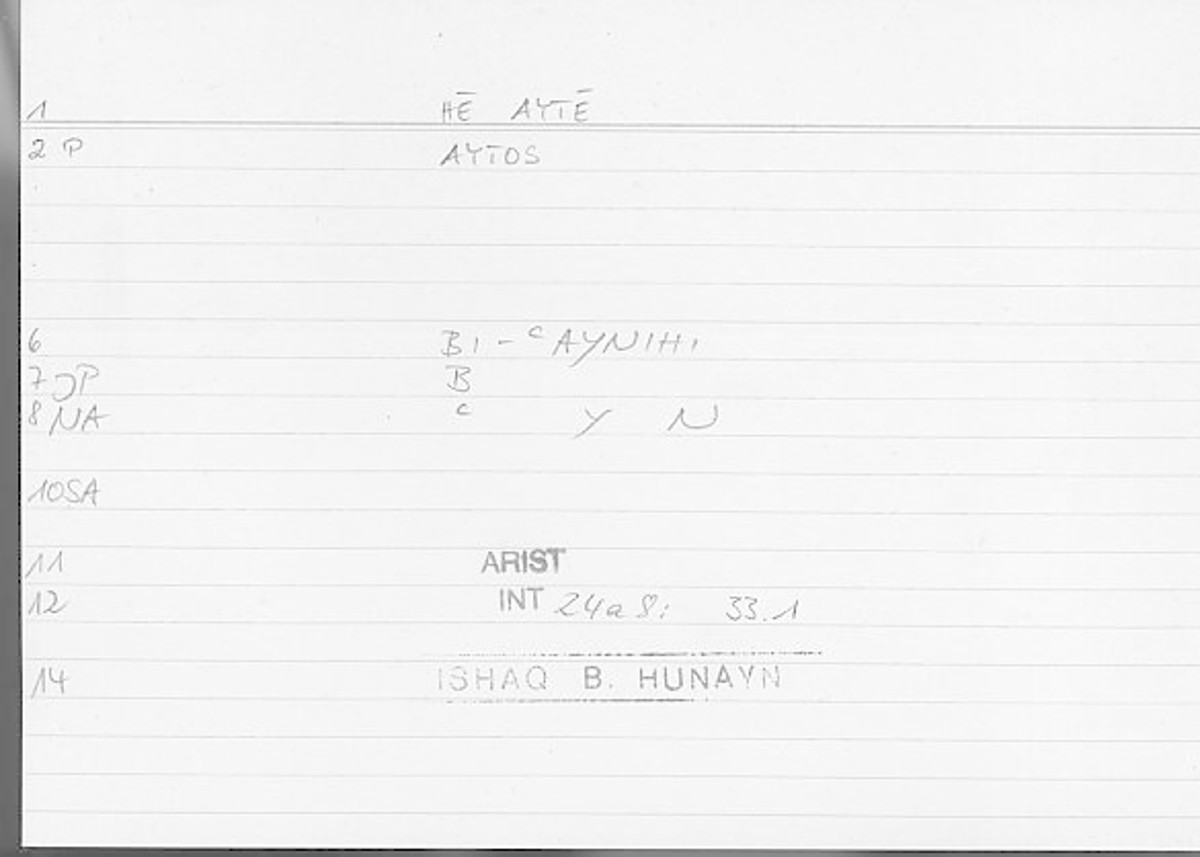 1 HĒ AYTĒ
2 P AYTOS
6 BI-ᶜAYNIHI
7 JP B
8 NA ᶜ Y N
10 SA
11 ARIST
12 INT 24a8; 33.1
14 ISHAQ B. HUNAYN